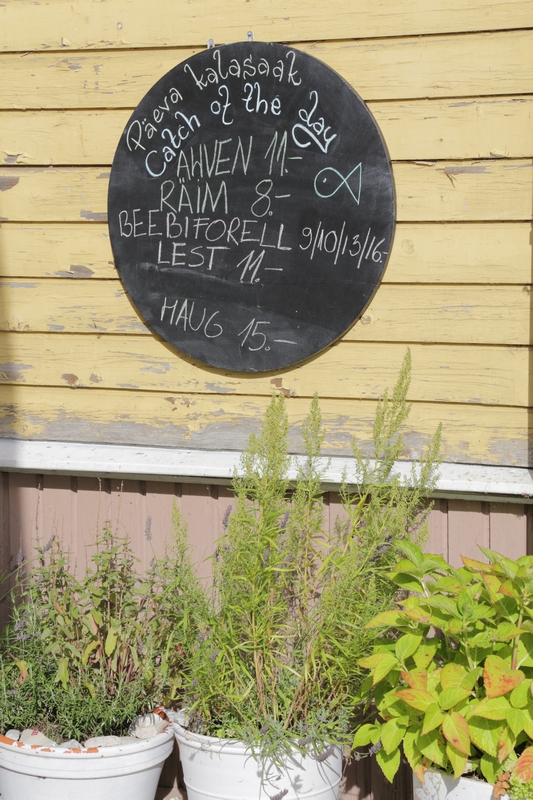 Päeva kalasaak
Catch of the day
AHVEN 11.-
RÄIM 8.-
BEEBIFORELL 9/10/13/16.-
LEST 11.-
HAUG 15.-